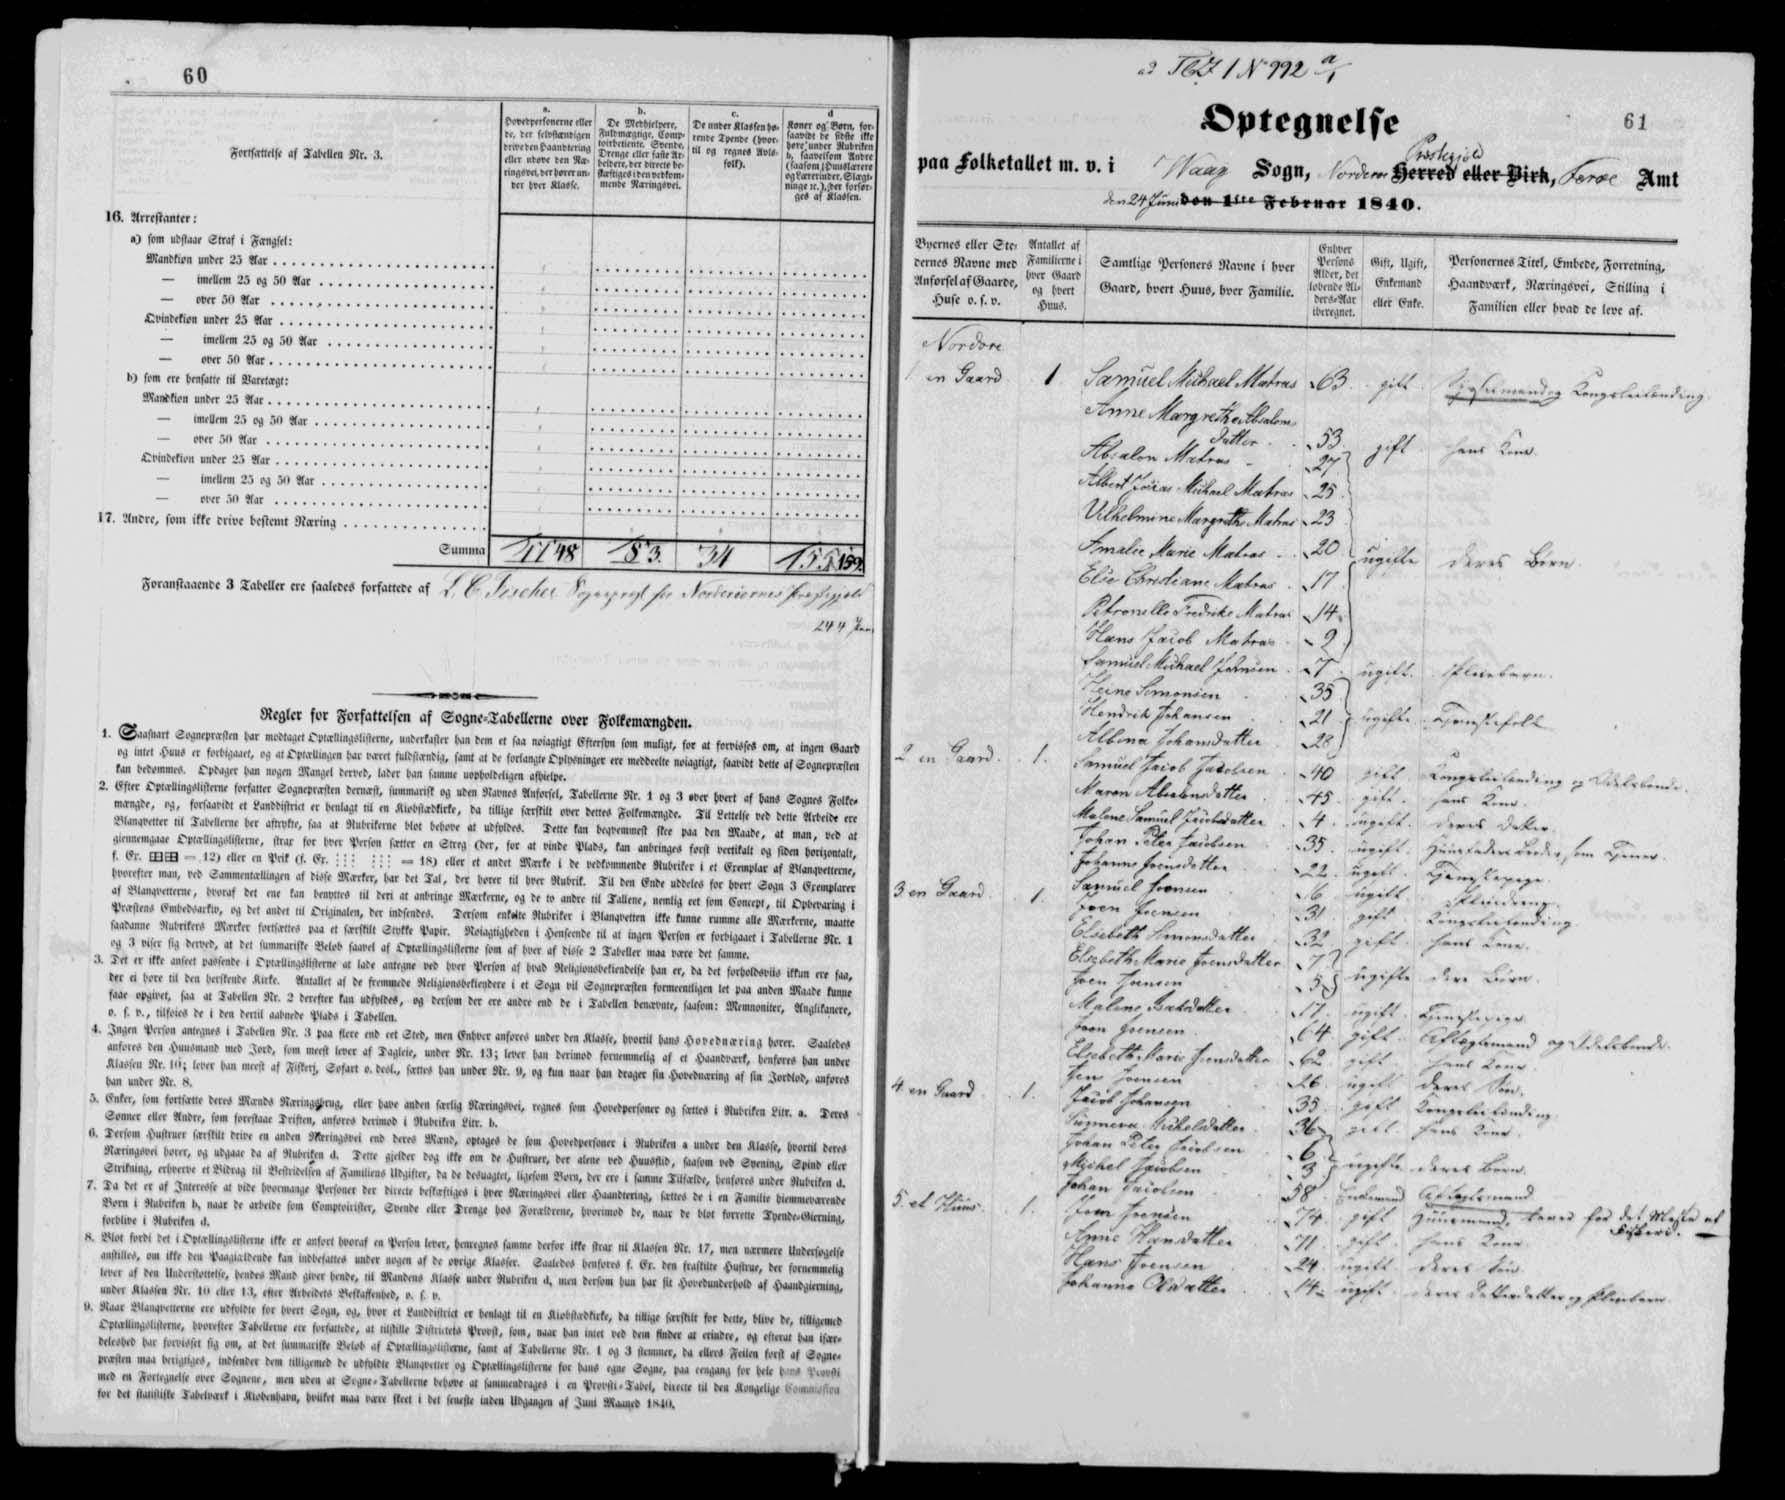 60
Fortsættelse af Tabellen Nr. 3.
a.
Hovedpersonerne eller
de, der selvstændigen
drive den Haandtering
eller udøve den Næ-
ringsvei, der hører un-
der hver Klasse.
b.
De Medhjelpere,
Fuldmægtige, Comp-
toirbetiente, Svende,
Drenge eller faste Ar-
beidere, der directe be-
skæftiges i den vedkom-
mende Næringsvei.
c.
De under Klassen hø-
rende Tyende (hvor-
til og regnes Avls-
folk).
d
Koner og Børn, for-
saavidt de sidste ikke
høre under Rubriken
b, saavelsom Andre
(saasom Huuslærere
og Lærerinder, Slægt-
ninge ꝛc.), der forsør-
ges af Klassen.
16. Arrestanter:
a) som udstaae Straf i Fængsel:
Mandkiøn under 25 Aar
— imellem 25 og 50 Aar
— over 50 Aar
Qvindekiøn under 25 Aar
— imellem 25 og 50 Aar
— over 50 Aar
b) som ere hensatte til Varetægt:
Mandkiøn under 25 Aar
— imellem 25 og 50 Aar
— over 50 Aar
Qvindekiøn under 25 Aar
— imellem 25 og 50 Aar
— over 50 Aar
17. Andre, som ikke drive bestemt Næring
Summa 48 83. 34 159.
Foranstaaende 3 Tabeller ere saaledes forfattede af L. C. Tescher Sognepræst for Norderøernes Præstegjeld
244
Regler for Forfattelsen af Sogne-Tabellerne over Folkemængden.
1. Saasnart Sognepræsten har modtaget Optællingslisterne, underkaster han dem et saa nøiagtigt Eftersyn som muligt, for at forvisses om, at ingen Gaard
og intet Huus er forbigaaet, og at Optællingen har været fuldstændig, samt at de forlangte Oplysninger ere meddeelte nøiagtigt, saavidt dette af Sognepræsten
kan bedømmes. Opdager han nogen Mangel derved, lader han samme uopholdeligen afhielpe.
2. Efter Optællingslisterne forfatter Sognepræsten dernæst, summarisk og uden Navnes Anførsel, Tabellerne Nr. 1 og 3 over hvert af hans Sognes Folke-
mængde, og, forsaavidt et Landdistrict er henlagt til en Kiøbstædkirke, da tillige særskilt over dettes Folkemængde. Til Lettelse ved dette Arbeide ere
Blanqvetter til Tabellerne her aftrykte, saa at Rubrikerne blot behøve at udfyldes. Dette kan beqvemmest skee paa den Maade, at man, ved at
giennemgaae Optællingslisterne, strax for hver Person sætter en Streg (der, for at vinde Plads, kan anbringes først vertikalt og siden horizontalt,
f. Ex. ⊞⊞ = 12) eller en Prik (f. Ex. ⋮⋮⋮ ⋮⋮⋮ = 18) eller et andet Mærke i de vedkommende Rubriker i et Exemplar af Blanqvetterne,
hvorefter man, ved Sammentællingen af disse Mærker, har det Tal, der hører til hver Rubrik. Til den Ende uddeles for hvert Sogn 3 Exemplarer
af Blanqvetterne, hvoraf det ene kan benyttes til deri at anbringe Mærkerne, og de to andre til Tallene, nemlig eet som Concept, til Opbevaring i
Præstens Embedsarkiv, og det andet til Originalen, der indsendes. Dersom enkelte Rubriker i Blanqvetten ikke kunne rumme alle Mærkerne, maatte
saadanne Rubrikers Mærker fortsættes paa et særskilt Stykke Papir. Nøiagtigheden i Henseende til at ingen Person er forbigaaet i Tabellerne Nr. 1
og 3 viser sig derved, at det summariske Beløb saavel af Optællingslisterne som af hver af disse 2 Tabeller maa være det samme.
3. Det er ikke anseet passende i Optællingslisterne at lade antegne ved hver Person af hvad Religionsbekiendelse han er, da det forholdsviis ikkun ere faa,
der ei høre til den herskende Kirke. Antallet af de fremmede Religionsbekiendere i et Sogn vil Sognepræsten formeentligen let paa anden Maade kunne
faae opgivet, saa at Tabellen Nr. 2 derefter kan udfyldes, og dersom der ere andre end de i Tabellen benævnte, saasom: Memnoniter, Anglikanere,
o. s. v., tilføies de i den dertil aabnede Plads i Tabellen.
4. Ingen Person antegnes i Tabellen Nr. 3 paa flere end eet Sted, men Enhver anføres under den Klasse, hvortil hans Hovednæring hører. Saaledes
anføres den Huusmand med Jord, som meest lever af Dagleie, under Nr. 13; lever han derimod fornemmelig af et Haandværk, henføres han under
Klassen Nr. 10; lever han meest af Fiskerj, Søfart o. desl., sættes han under Nr. 9, og kun naar han drager sin Hovednæring af sin Jordlod, anføres
han under Nr. 8.
5. Enker, som fortsætte deres Mænds Næringsbrug, eller have anden særlig Næringsvei, regnes som Hovedpersoner og sættes i Rubriken Litr. a. Deres
Sønner eller Andre, som forestaae Driften, anføres derimod i Rubriken Litr. b.
6. Dersom Hustruer særskilt drive en anden Næringsvei end deres Mænd, optages de som Hovedpersoner i Rubriken a under den Klasse, hvortil deres
Næringsvei hører, og udgaae da af Rubriken d. Dette gjelder dog ikke om de Hustruer, der alene ved Huusflid, saasom ved Syening, Spind eller
Strikning, erhverve et Bidrag til Bestridelsen af Familiens Udgifter, da de desuagtet, ligesom Børn, der ere i samme Tilfælde, henføres under Rubriken d.
7. Da det er af Interesse at vide hvormange Personer der directe beskæftiges i hver Næringsvei eller Haandtering, sættes de i en Familie hiemmeværende
Børn i Rubriken b, naar de arbeide som Comptoirister, Svende eller Drenge hos Forældrene, hvorimod de, naar de blot forrette Tyende-Gierning,
forblive i Rubriken d.
8. Blot fordi det i Optællingslisterne ikke er anført hvoraf en Person lever, henregnes samme derfor ikke strax til Klassen Nr. 17, men nærmere Undersøgelse
anstilles, om ikke den Paagiældende kan indbefattes under nogen af de øvrige Klasser. Saaledes henføres f. Ex. den fraskilte Hustrue, der fornemmelig
lever af den Understøttelse, hendes Mand giver hende, til Mandens Klasse under Rubriken d, men dersom hun har sit Hovedunderhold af Haandgierning,
under Klassen Nr. 10 eller 13, efter Arbeidets Beskaffenhed, o. s. v.
9. Naar Blanqvetterne ere udfyldte for hvert Sogn, og, hvor et Landdistrict er henlagt til en Kiøbstædkirke, da tillige særskilt for dette, blive de, tilligemed
Optællingslisterne, hvorefter Tabellerne ere forfattede, at tilstille Districtets Provst, som, naar han intet ved dem finder at erindre, og efterat han især-
deleshed har forvisset sig om, at det summariske Beløb af Optællingslisterne, samt af Tabellerne Nr. 1 og 3 stemmer, da ellers Feilen først af Sogne-
præsten maa berigtiges, indsender dem tilligemed de udfyldte Blanqvetter og Optællingslisterne for hans egne Sogne, paa eengang for hele hans Provsti
med en Fortegnelse over Sognene, men uden at Sogne-Tabellerne behøve at sammendrages i en Provsti-Tabel, directe til den Kongelige Commission
for det statistiske Tabelværk i Kiøbenhavn, hvilket maa være skeet i det seneste inden Udgangen af Juni Maaned 1840.
ad 1 No 992 a/1
61
Optegnelse
paa Folketallet m. v. i Waag Sogn, Norderøe Præstegjeld Herred eller Birk, Færøe Amt
den 24 Juni den 1ste Februar 1840.
Byernes eller Ste-
dernes Navne med
Anførsel af Gaarde,
Huse o. s. v.
Antallet af
Familierne i
hver Gaard
og hvert
Huus.
Samtlige Personers Navne i hver
Gaard, hvert Huus, hver Familie.
Enhver
Persons
Alder, det
løbende Al-
ders-Aar
iberegnet.
Gift, Ugift,
Enkemand
eller Enke.
Personernes Titel, Embede, Forretning,
Haandværk, Næringsvei, Stilling i
Familien eller hvad de leve af.
Nordøre
1 en Gaard 1 Samuel Michael Matras 63 gift Sysselmand og Kongsleilænding.
Anne Margrethe Absalons
Datter 53 gift hans Kone.
Absalon Matras 27
Albert Josias Michael Matras 25
Vilhelmine Margrethe Matras 23
Amalie Marie Matras 20 ugifte deres Børn.
Elsie Christiane Matras 17
Petronelle Fredrike Matras 14
Hans Jacob Matras 9
Samuel Michael Johnsen 7 ugift. Pleiebarn.
Heine Simonsen 35
Hendrik Johansen 21 ugifte Tjenestefolk
Albina Johansdatter 28
2 en Gaard. 1. Samuel Jacob Jacobsen 40 gift Kongsleilænding og Odelsbonde.
Maren Absalonsdatter 45 gift hans Kone.
Malene Samuel Jacobsdatter 4 ugift. deres Datter.
Johan Peter Jacobsen 35 ugift. Huusfaders Broder, som Tjener.
Johanne Joensdatter 22 ugift. Tjenestepige.
Samuel Joensen 6 ugift Pleiedreng.
3 en Gaard 1. Joen Joensen 31 gift Kongsleilænding
Elsebeth Simonsdatter 32 gift. hans Kone.
Elsebeth Marie Joensdatter 7
Joen Joensen 5 ugifte dere Børn.
Malene Isaksdatter 17. ugift. Tjenestepige
Joen Joensen 64. gift. Aftægtsmand og Odelsbonde.
Elsebeth Marie Joensdatter 62 gift hans Kone.
Jens Joensen 26 ugift deres Søn.
4. en Gaard 1. Jacob Johansen 35 gift Kongsleilænding.
Sunneva Michelsdatter 36 gift. hans Kone.
Johan Peter Jacobsen 6
Michel Jacobsen 3 ugifte deres Børn.
Johan Jacobsen 58 Enkemand Aftægtsmand
5. et Huus. 1. Joen Joensen 74. gift Huusmand, lever for det Meste af
Fiskeri.
Anne Hansdatter 71 gift. hans Kone
Hans Joensen 24 ugift deres Søn.
Johanne Oledatter 14 ugift. deres Datterdatter og Pleiebarn.